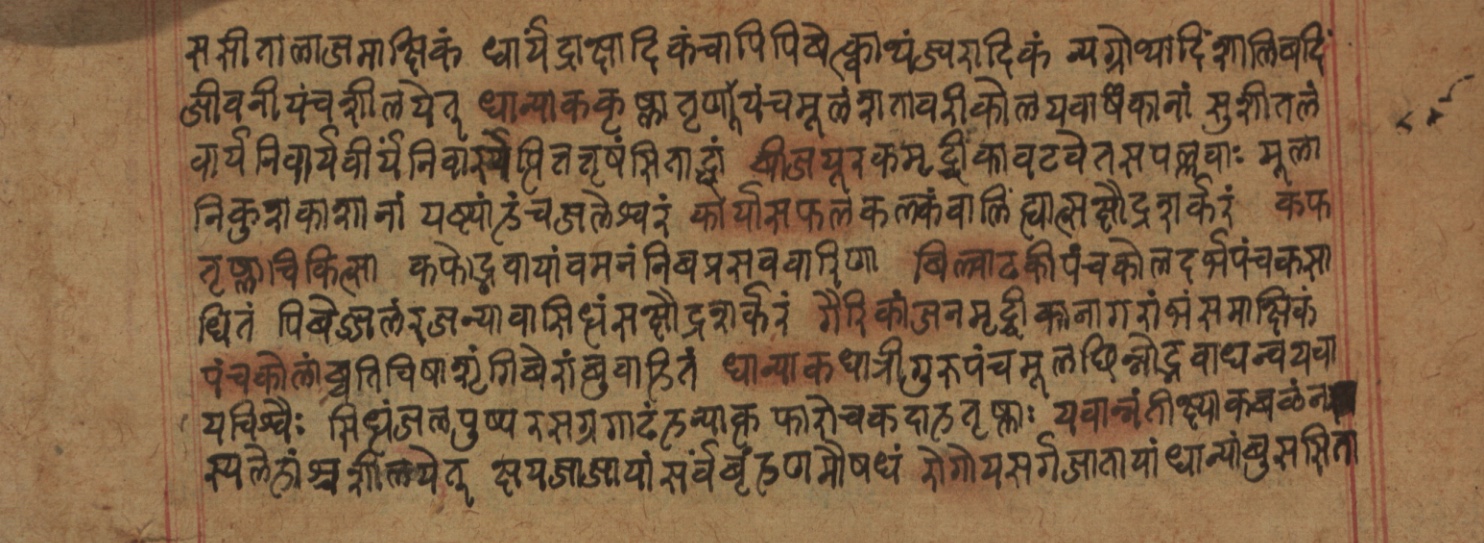 ससीतालाजमाक्षिकं धार्यद्राक्षादिकंचापिपिबेत्क्वाथंज्वरादिकं न्यग्रोधादिंशालिबदिं
जीवनीयंचशीलयेत् धान्याककृष्णातृणाुयंचमूलंशतावरीकोलयवार्षकानां सुशीतलं
वार्यनिवार्यवीर्यनिवार्स्यैपित्ततृषंसिताढ्यं बीजयूरकमृद्वीकावटवेतसपल्लवाः मूला
निकुशकाशानां यष्ट्यांहंचजलेश्वरं कार्यासफलकल्कंवालिंह्यात्सक्षौद्रशर्करं कफ
तृष्णाचिकित्सा कफोद्भवायांवमनंनिबप्रसववारिणा बिल्वाढकीपंचकोलदर्भपंचकसा
धितं पिबेज्जलंरजन्यावासिधंसक्षौद्रशर्करं गैरिकांजनमृद्वीकानागरांभंसमाक्षिकं
पंचकोलांब्वतिविषाशृंगिबेरांबुवाहितं धान्याकधात्रीगुरुपंचमूलछिन्नोद्भवाधन्वयवा
यविश्वैः सिधंजलपुष्परसग्रगाढंहन्याकफारोचकदाहतृष्णाः यवान्नंतीक्ष्याकबळंन
स्यलेहांश्चशीलयेत् क्षयजाजायांसर्वबृंहणमौषधं रोगोयसर्गजातायांधान्यांबुससिता